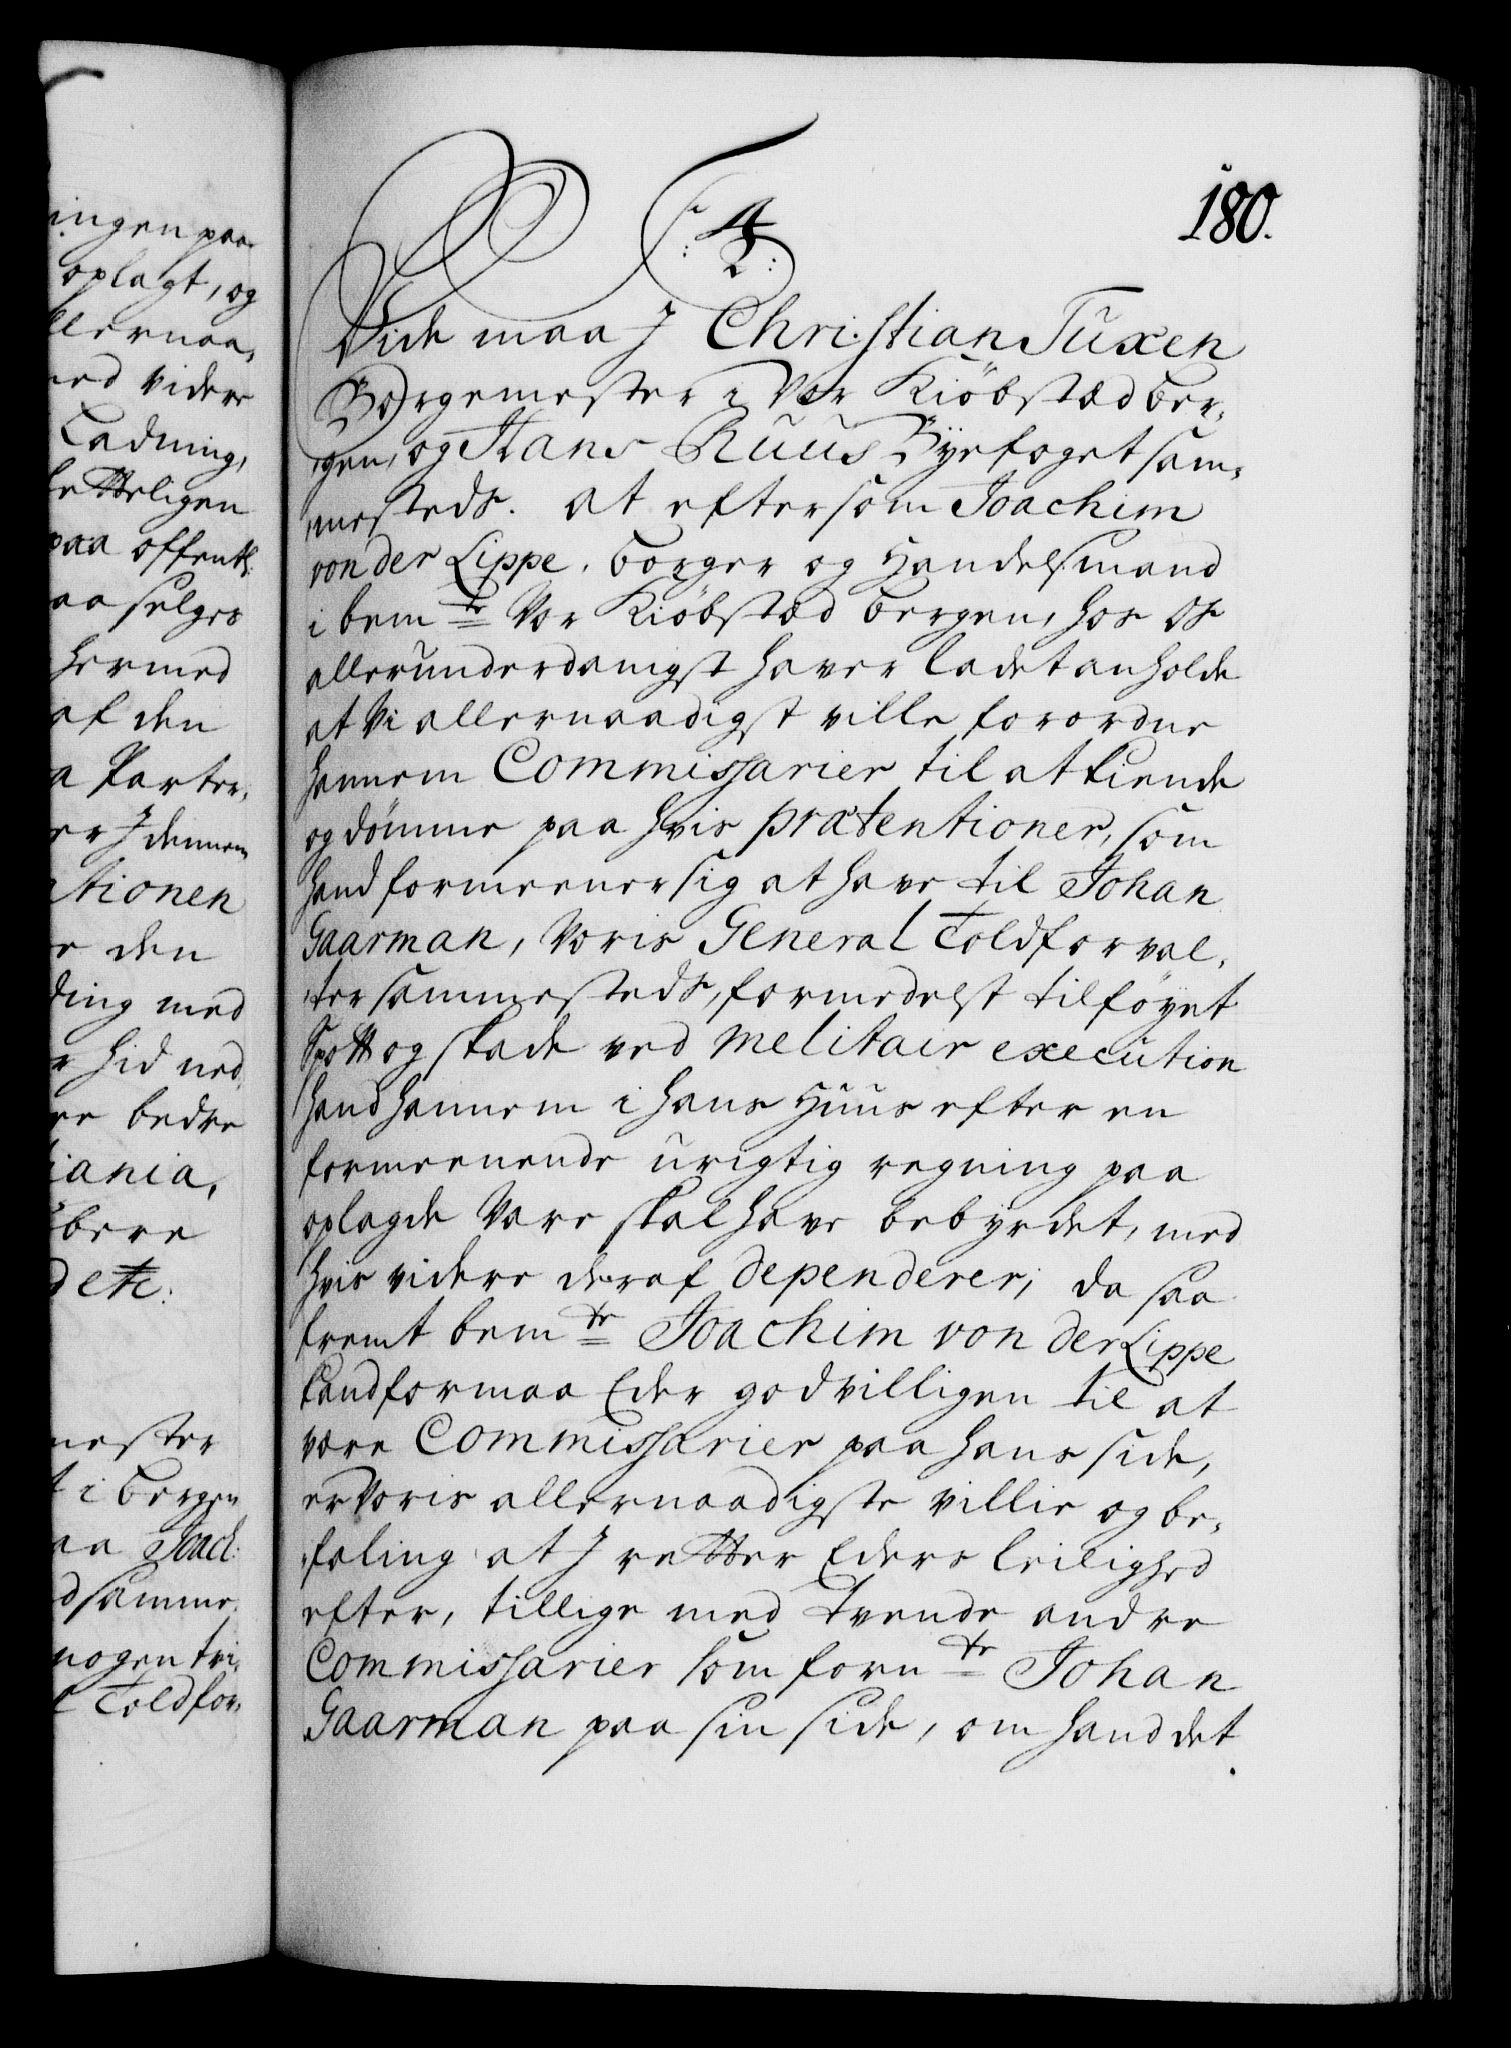 ingen paa
oplagt, og
llernaa,
ned videre
Ladning,
retteligen
paa offentl:
aa selges
hermed
af den
a Parter,
er I dennem
ntionen
e den
ding med
r hid ned,
re bedre
iania,
bere
d etc:
mester
t i Bergen
aa Joach:
d samme,
nogen tvi,
l Toldfor,
180.
F 4
Vide maa I Christian Tuxen
Borgemester i Vor Kiöbstæd Ber,
gen, og Hans Ruus Byefoget sam,
mesteds. At eftersom Joachim
von der Lippe, borger og Handelsmand
i bemte Vor Kiöbstæd Bergen, hos Os
allerunderdanigst haver ladet anholde
at Vi allernaadigst ville forordne
hannem Commissarier til at kiende
og dömme paa hvis prætentioner, som
hand formeener sig at have til Johan
Gaarman, Voris General Toldforval,
ter sammesteds, formedelst tilföyet
Spott og skade ved melitair execution
hand hannem i hans Huus efter en
formeenende urigtig regning paa
oplagde Vare skal have bebyrdet, med
hvis videre deraf dependerer; da saa
fremt bemte Joachim von der Lippe
kand formaa Eder godvilligen til at
være Commissarier paa hans side,
er Voris allernaadigste villie og be,
faling at I retter Eders leilighed
efter, tillige med tvende andre
Commissarier som fornte Johan
Gaarman paa sin side, om hand det